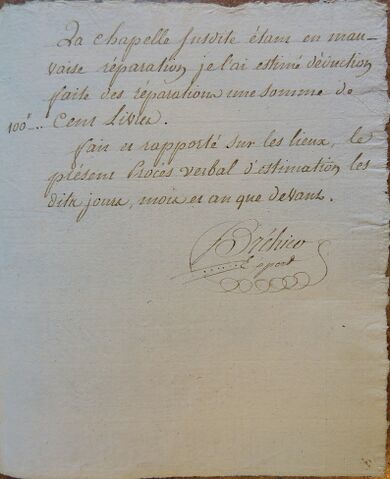 La chapelle susdite étant en mau-
vaise réparation, je l'ai estimé déduction
faite des réparations une somme de
100# .. Cent Livres.
fait et rapporté sur les lieux, le
présent Procès verbal d'estimation les
dits jours, mois et an que devant.
Bréhier
Expert